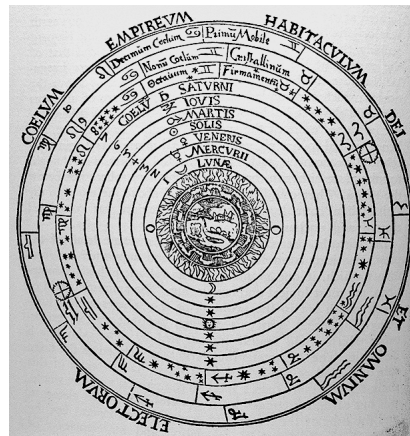 COELVM EMPIREVM HABITACVLVM DEI
ET OMNIVM
ELECTORVM
Decimum Coelum Primũ Mobile
Nonũ Coelum Cristallinum
Octauum Firmamentũ
COELV SATVRNI
IOVIS
MARTIS
SOLIS
VENERIS
MERCVRII
LVNÆ